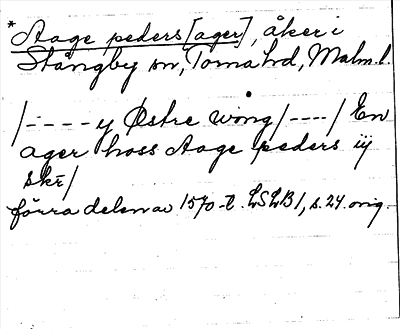 * Aage peders [ager], åker i
Stångby sn, Torna hd, Malm. l.
/- - - - y Østre wong/- - - -/ En
ager hoss Aage peders iij
skr̄/
förra delen av 1570-t. LSLB 1, s. 24. orig.